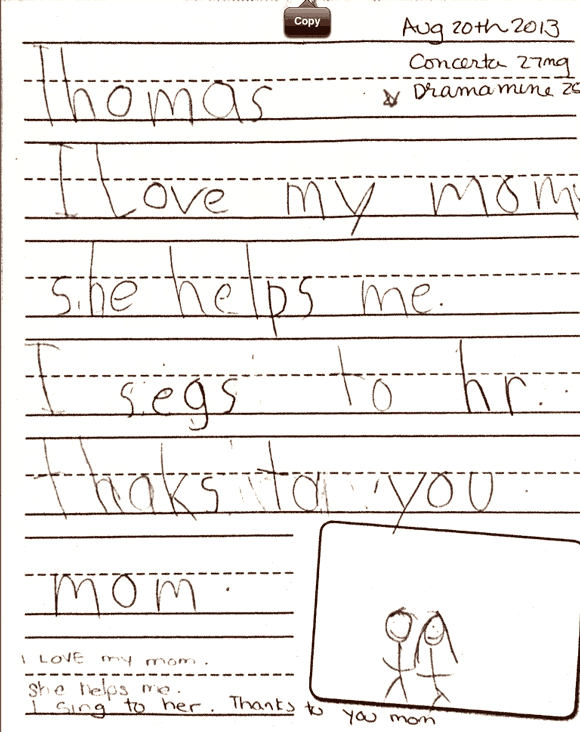 Copy
Aug 20th 2013
Concerta 27mg
Dramamine
Thomas
I Love my mom
she helps me.
I segs to hr.
thaks to you
mom.
I LOVE my mom.
she helps me.
I sing to her. Thanks to you mom